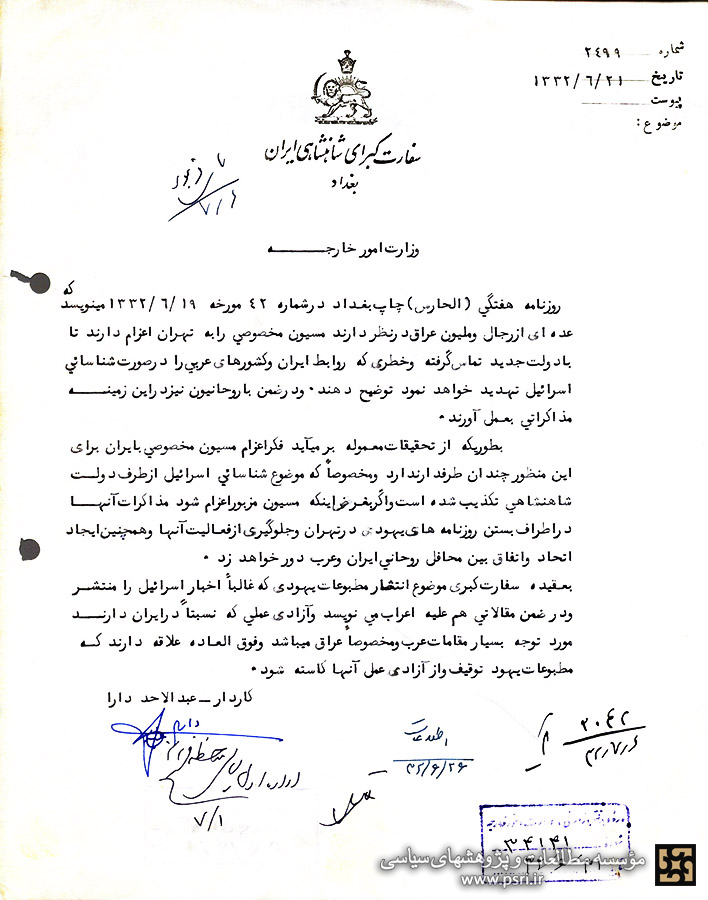 شماره ۲۴۹۹
تاریخ ۱۳۳۲/۶/۲۱
پیوست
موضوع:
سفارت کبرای شاهنشاهی ایران
بغداد
۷/۱
وزارت امور خارجـــــه
روزنامه هفتگي (الحارس) چاپ بغداد در شماره ۴۲ مورخه ۱۳۳۲/۶/۱۹ مینویسد که
عده ای از رجال وملیون عراق در نظر دارند مسیون مخصوصي را به تهران اعزام دارند تا
با دولت جدید تماس گرفته وخطري که روابط ایران وکشورهای عربي را در صورت شناسائي
اسرائیل تهدید خواهد نمود توضیح دهند ۰ ودر ضمن با روحانیون نیز در این زمینـــه
مذاکراتي بعمل آورند ۰
بطوریکه از تحقیقات معموله بر میآید فکر اعزام مسیون مخصوصي با یران برای
این منظور چندان طرفدار ندارد ومخصوصاً که موضوع شناسائي اسرائیل از طرف دولت
شاهنشاهي تکذیب شده است واگر بفرض اینکه مسیون مزبور اعزام شود مذاکرات آنهـا
در اطراف بستن روزنامه های یهودی در تهران وجلوگیری از فعالیت آنها وهمچنین ایجاد
اتحاد واتفاق بین محافل روحاني ایران وعرب دور خواهد زد ۰
بعقیده سفارت کبری موضوع انتشار مطبوعات یهودی که غالباً اخبار اسرائیل را منتشر
ودر ضمن مقالاتي هم علیه اعراب مي نویسد وآزادی عملي که نسبتاً در ایران دارنـــد
مورد توجه بسیار مقامات عرب ومخصوصاً عراق میباشد وفوق العاده علاقه دارند کـه
مطبوعات یهود توقیف واز آزادی عمل آنها کاسته شود ۰
کاردار ــ عبدالاحد دارا
۳۰۴۲
۳۲/۷/۶
اطلاعات
۳۲/۶/۲۶
۷/۱
۳۴۱۴۱
مؤسسه مطالعات و پژوهشهای سیاسی
www.psri.ir